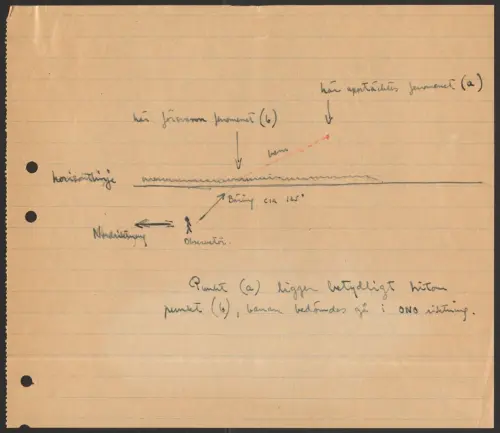 här upptäcktes fenomenet (a)
här försvann fenomenet (b)
bana
horisontlinje
Bäring cia 125°
Nordriktning
Observatör.
Punkt (a) ligger betydligt hitom
punkt (b), banan bedömdes gå i ONO riktning.